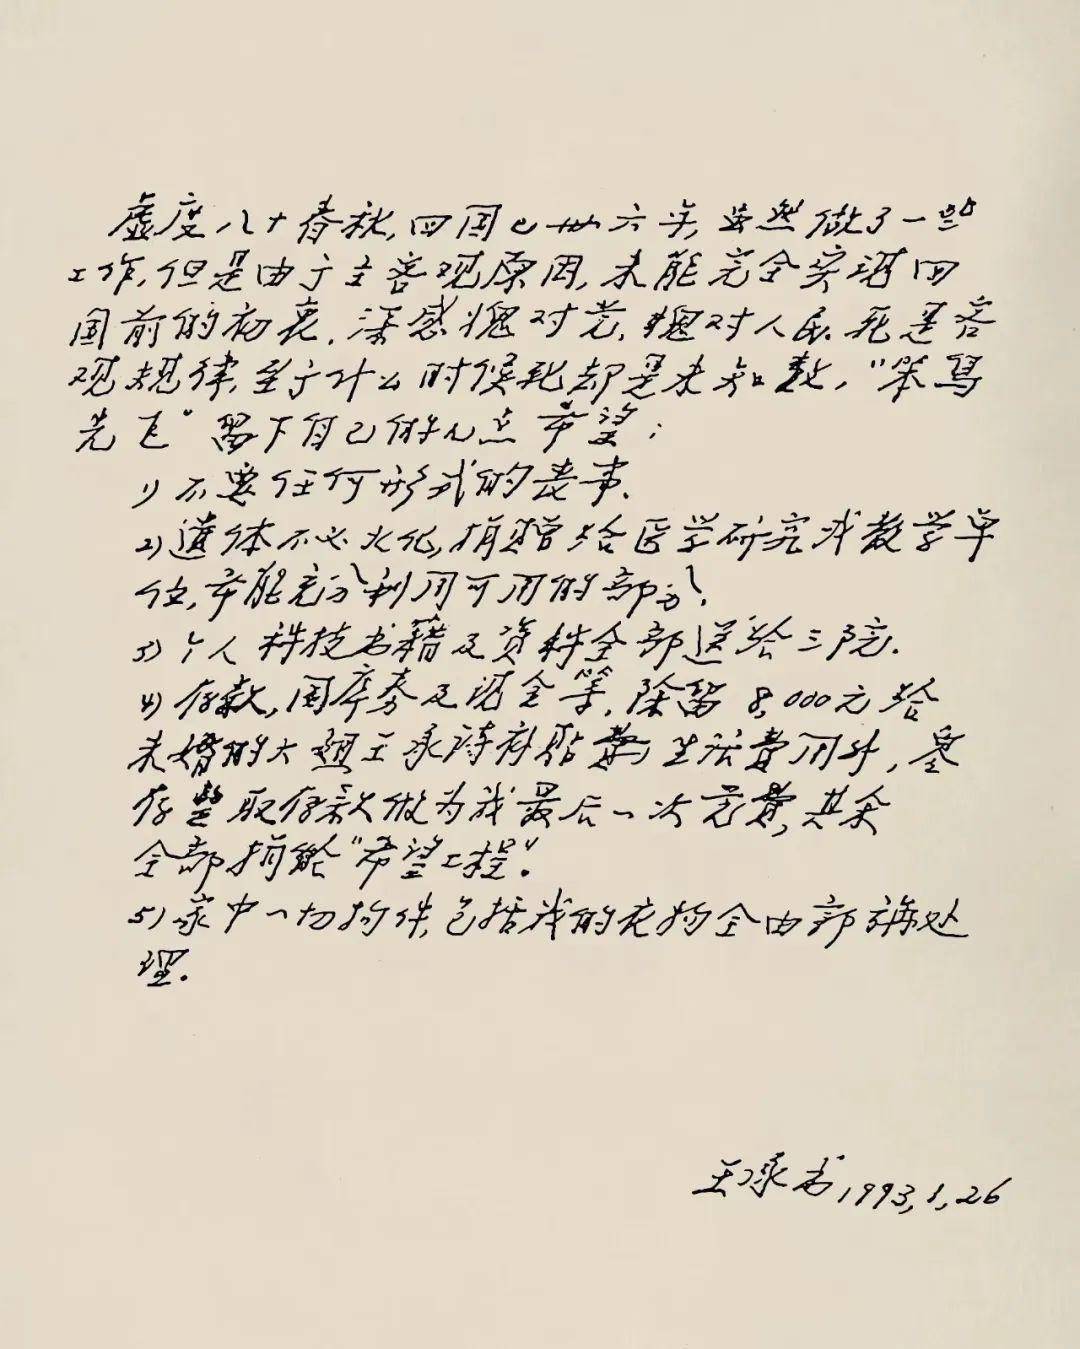 虚度八十春秋,回国已卅六年,虽然做了一些
工作,但是由于主客观原因,未能完全实现回
国前的初衷,深感愧对党,愧对人民.死是客
观规律,至于什么时候死却是未知数,“笨鸟
先飞”留下自己的几点希望:
1)不要任何形式的丧事.
2)遗体不必火化,捐赠给医学研究或教学单
位,希能充分利用可用的部分.
3)个人科技书籍及资料全部送给三院.
4)存款,国库券及现金等,除留8,000元给
未婚的大姐王承诗补贴费用生活费用外,零
存整取存款做为我最后一次党费,其余
全部捐给“希望工程”.
5)家中一切物件,包括我的衣物全由郭张处
理.
王承书,1993,1,26